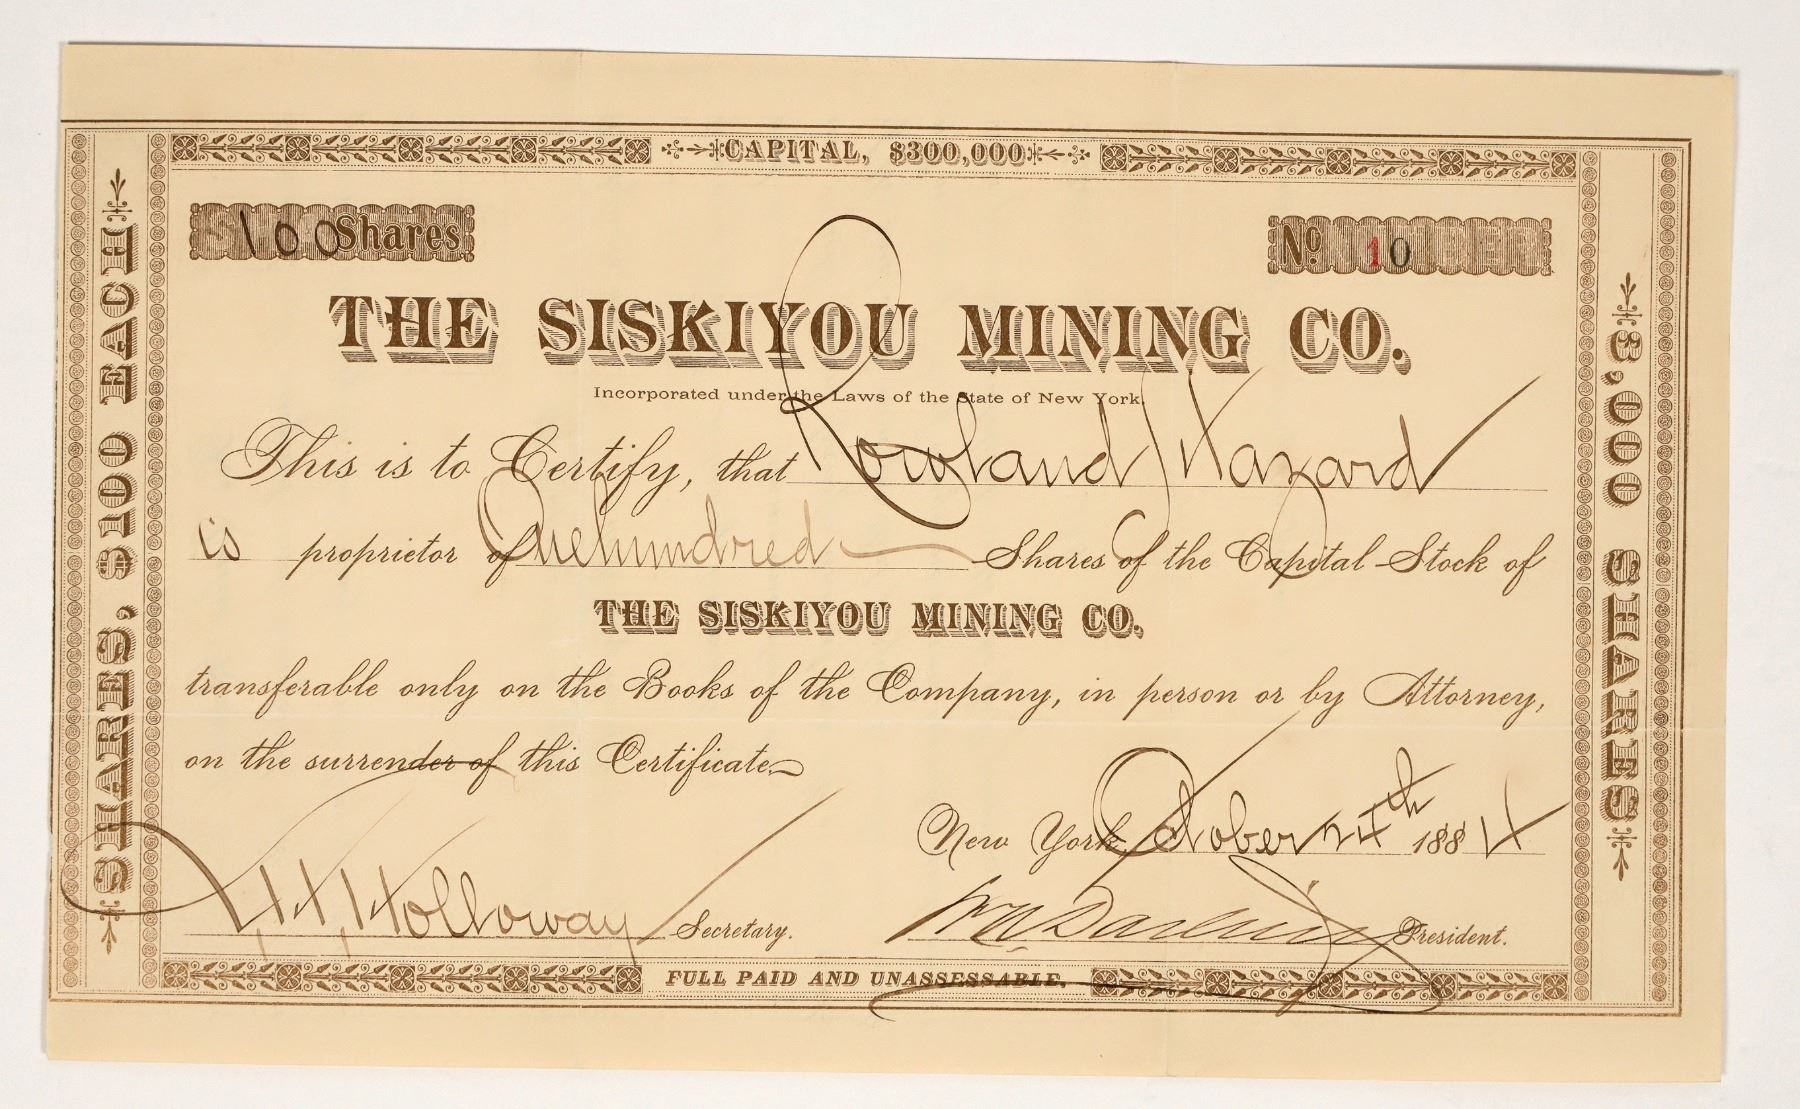 CAPITAL, $300,000
100 Shares
No. 10
THE SISKIYOU MINING CO.
Incorporated under the Laws of the State of New York.
This is to Certify, that Rowland Hazard
is proprietor of Onehundred Shares of the Capital Stock of
THE SISKIYOU MINING CO.
transferable only on the Books of the Company, in person or by Attorney,
on the surrender of this Certificate
New York, October 24th 1884
Holloway Secretary.
Wm Darling President.
FULL PAID AND UNASSESSABLE.
SHARES, $100 EACH
3,000 SHARES